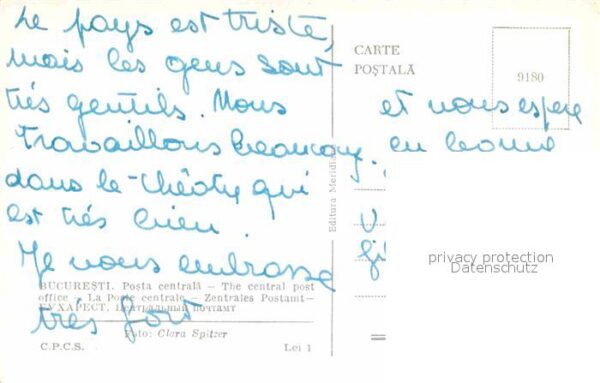 Le pays est triste,
mais les gens sont
très gentils. Nous
travaillons beaucoup.
dans le théâtre qui
est très bien.
Je vous embrasse
très fort
et vous espère
en bonne
CARTE
POŞTALĂ
9180
Editura Meridiane
privacy protection
Datenschutz
BUCUREŞTI. Poşta centrală — The central post
office — La Poste centrale — Zentrales Postamt —
БУХАРЕСТ. Центральный почтамт
Foto: Clara Spitzer
C.P.C.S.
Lei 1